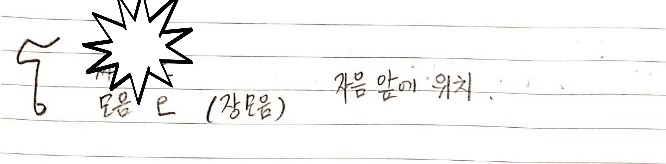 โ 모음 (장모음) 자음 앞에 위치.